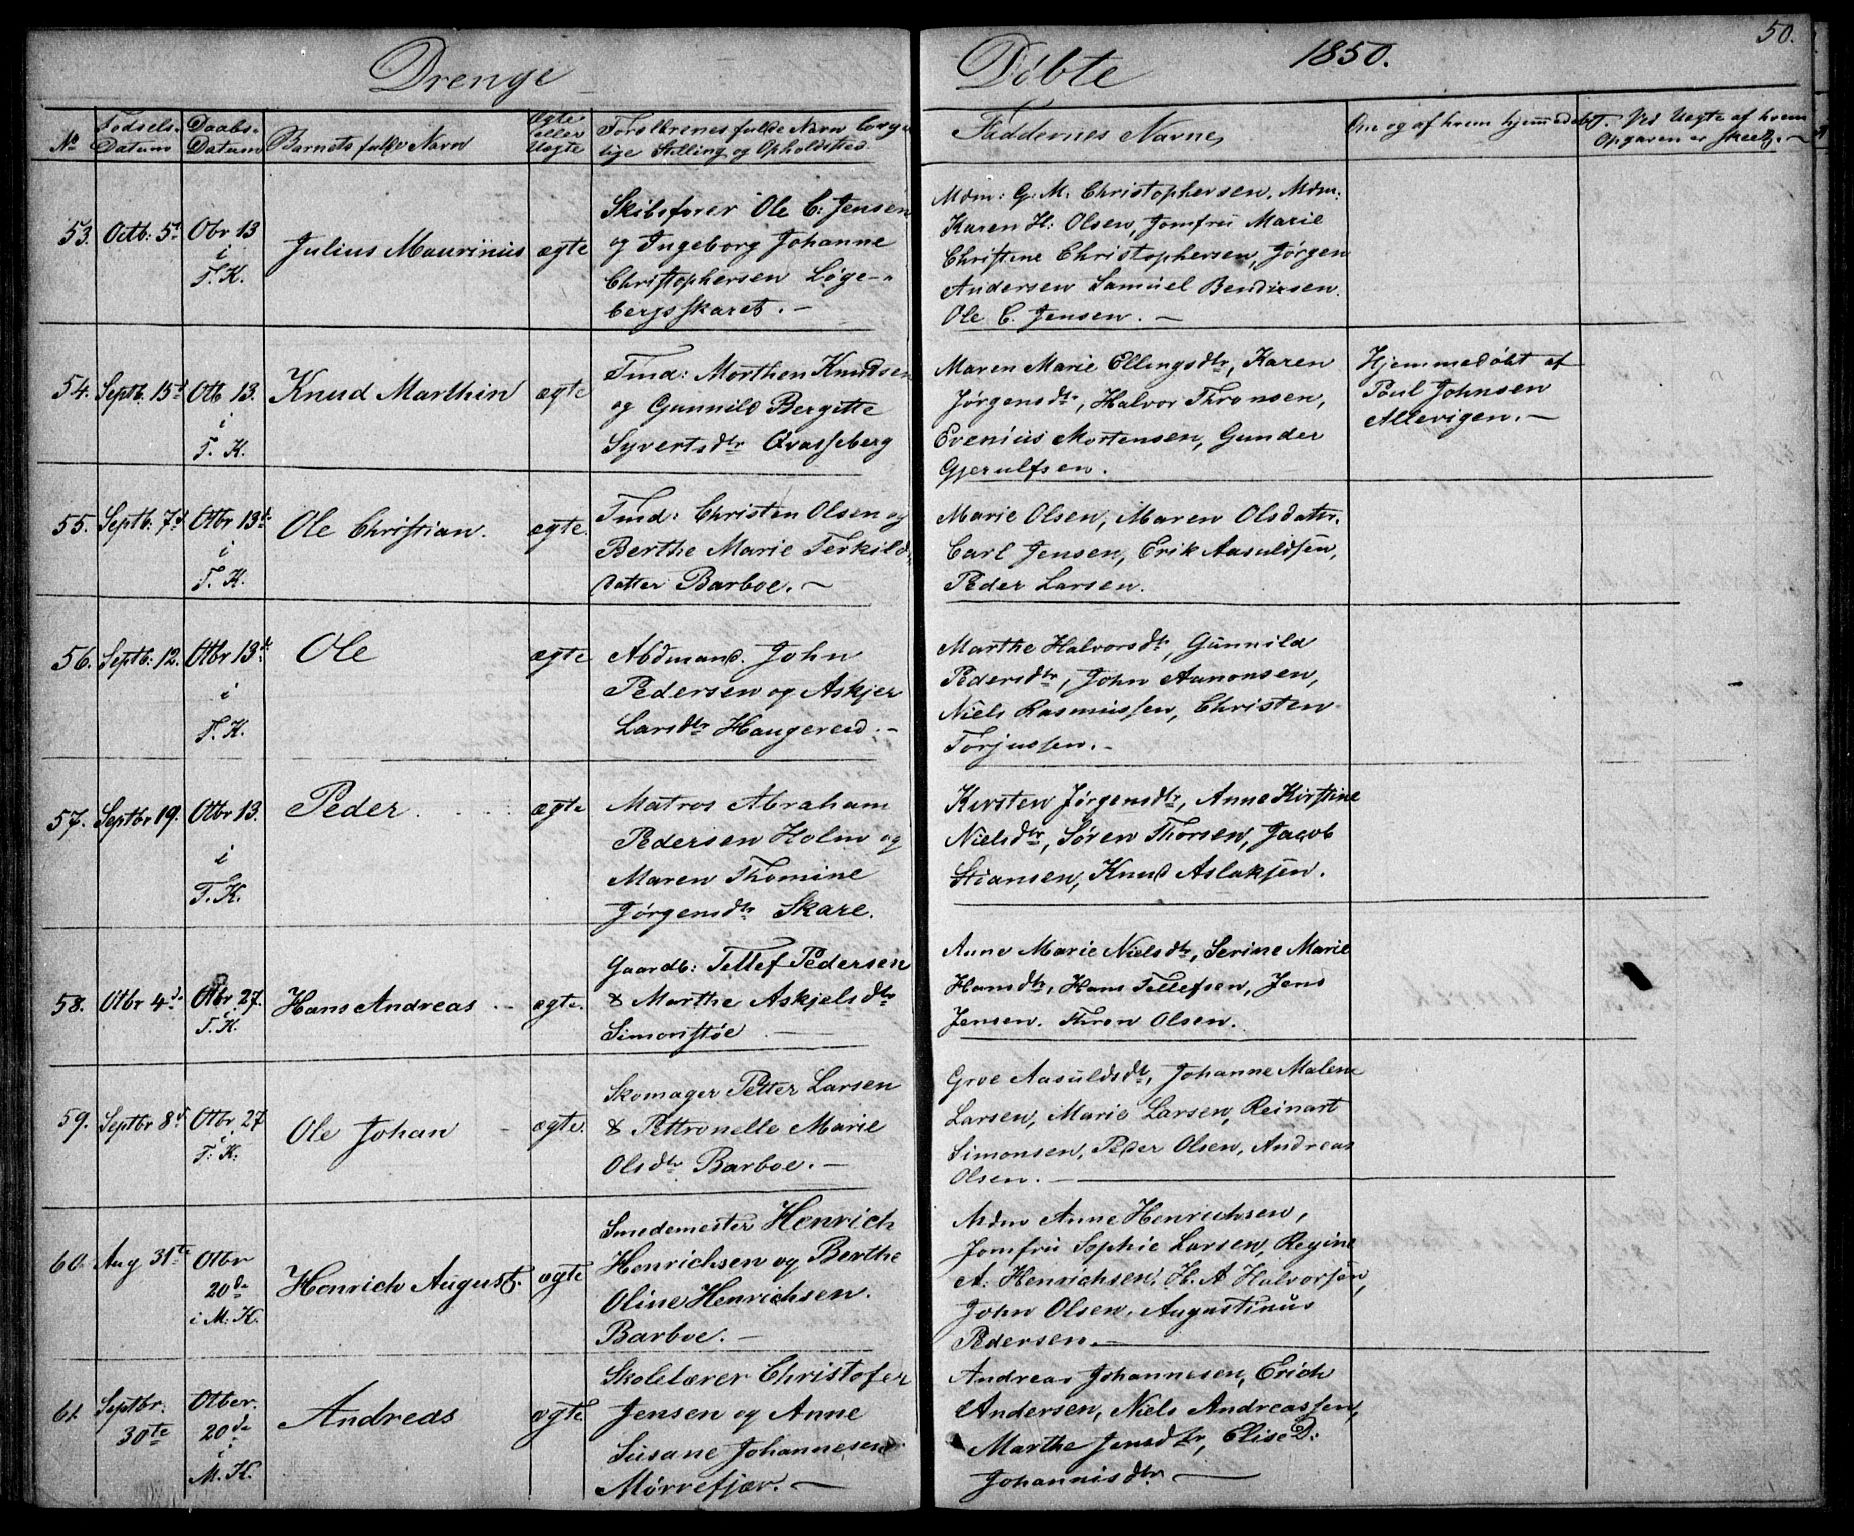 Drenge
Døbte 1850. 50.
No Fødsels-Datum Daabs-Datum Barnets fulde Navn Ægte eller Uægte Forældrenes fulde Navn borgerlige Stilling og Opholdssted. Faddernes Navne Om og af hvem hjemmedøbt. Ved Uægte af hvem Opgaven er skeet.
53. Octb: 5t Obr 13 i T. K. Julius Maurinius ægte
Skibsfører Ole C: Jensen
og Ingeborg Johanne
Christophersen Løge-
bergsskaret. -
Mdm: G. M. Christophersen. Mdm:
Karen H: Olsen, Jomfru Marie
Christine Christophersen, Jørgen
Andersen Samuel Bendixsen.
Ole C. Jensen. -
54. Septb. 15d Otb 13. i T. K. Knud Marthin ægte
Tmd: Morthen Knudsen
og Gunnild Bergitte
Syvertsdtr Qvasseberg
Maren Marie Ellingsdtr, Karen
Jørgensdtr, Halvor Thronsen,
Evenius Mortensen, Gunder
Gjerulfsen.
Hjemmedøbt af
Poul Johnsen
Allevigen. -
55. Septb: 7d Otbr 13d i T. K. Ole Christian. ægte.
Tmd: Christen Olsen og
Berthe Marie Terkilds
datter Barboe. -
Marie Olsen, Maren Olsdatr.
Carl Jensen, Erik Aasuldsen,
Peder Larsen.
56. Septb: 12. Otbr 13d i T. K. Ole ægte
Abdmand. John
Pedersen og Askjer
Larsdtr Haugereid. -
Marthe Halvorsdtr, Gunnild
Pedersdtr, John Aanonsen,
Niels Rasmussen, Christen
Torjussen. -
57. Septbr 19. Otbr 13. i T. K. Peder ægte
Matros Abraham
Pedersen Holm og
Maren Thomine
Jørgensdtr Skare.
Kirsten Jørgensdtr, Anne Kirstine
Nielsdtr, Søren Thorsen, Jacob
Stiansen, Knud Aslaksen.
58. Otbr 4d Otbr 27. i T. K. Hans Andreas ægte.
Gaardb: Tellef Pedersen
& Marthe Askjelsdtr
Simonstøe
Anne Marie Nielsdtr, Serine Marie
Hansdtr, Hans Tellefsen, Jens
Jensen. Thron Olsen.
59. Septbr 8d Otbr. 27 i T. K. Ole Johan ægte.
Skomager Petter Larsen
& Pettronelle Marie
Olsdtr Barboe. -
Groe Aasuldsdtr, Johanne Malene
Larsen, Marie Larsen, Reinart
Simonsen, Peder Olsen, Andreas
Olsen. -
60. Aug 31te Otbr 20de i M. K. Henrich August. ægte
Smedemester Henrich
Henrichsen og Berthe
Oline Henrichsen.
Barboe. -
Mdm Anne Henrichsen,
Jomfru Sophie Larsen, Regine
A. Henrichsen, H. A Halvorsen,
John Olsen, Augustinus
Pedersen. -
61. Septbr. 30te Otber. 20de i M. K. Andreas ægte
Skolelærer Christofer
Jensen og Anne
Susane Johannesen
Mørrefjær. -
Andreas Johannesen, Erich
Andersen, Niels Andreassen,
Marthe Jensdtr, Elise D:
Johannisdtr. -